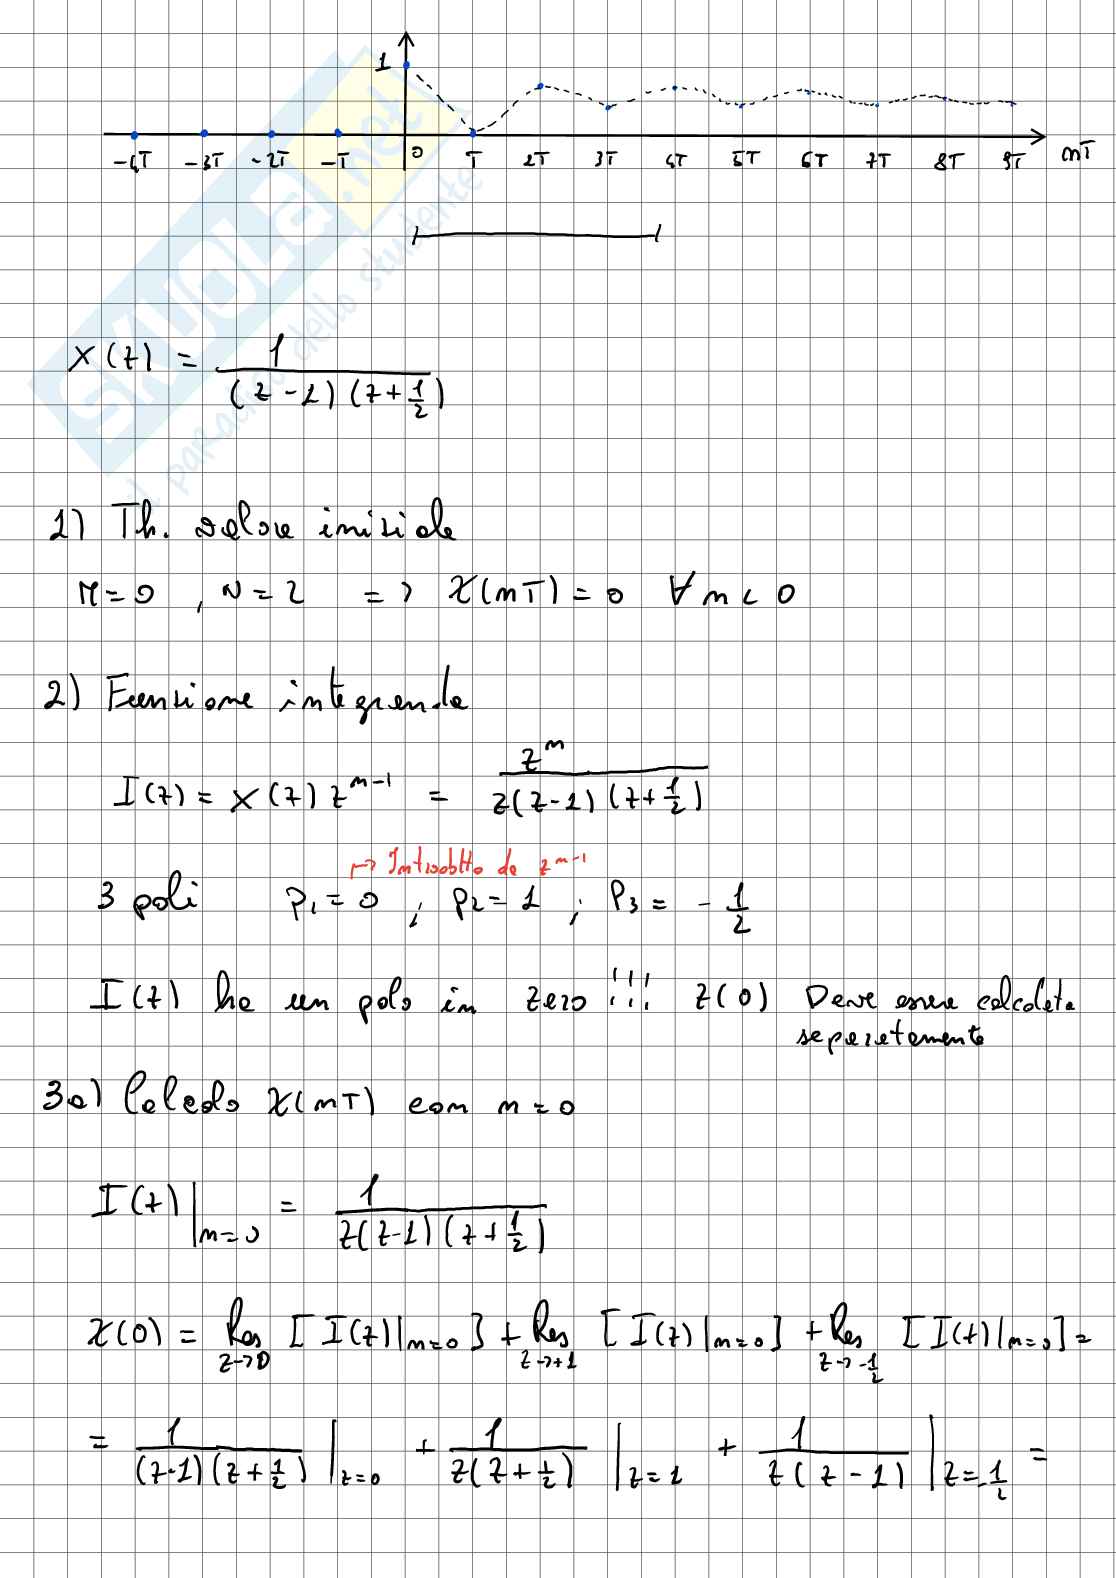 1
-4T -3T -2T -T 0 T 2T 3T 4T 5T 6T 7T 8T 9T nT
SKUOLA.net
il paradiso dello studente
X(z) = 1 / ((z-1)(z+1/2))
1) Th. valore iniziale
M=0 , N=2 => x(nT)=0 ∀n<0
2) Funzione integranda
I(z) = X(z) z^(n-1) = z^n / (z(z-1)(z+1/2))
↦ Introdotto da z^(n-1)
3 poli P1=0 ; P2=1 ; P3=-1/2
I(z) ha un polo in zero !!! x(0) Deve essere calcolata
separatamente
3a) Calcolo x(nT) con n=0
I(z)|n=0 = 1 / (z(z-1)(z+1/2))
x(0) = Res z→0 [I(z)|n=0] + Res z→+1 [I(z)|n=0] + Res z→-1/2 [I(z)|n=0] =
= 1 / ((z-1)(z+1/2)) |z=0 + 1 / (z(z+1/2)) |z=1 + 1 / (z(z-1)) |z=-1/2 =